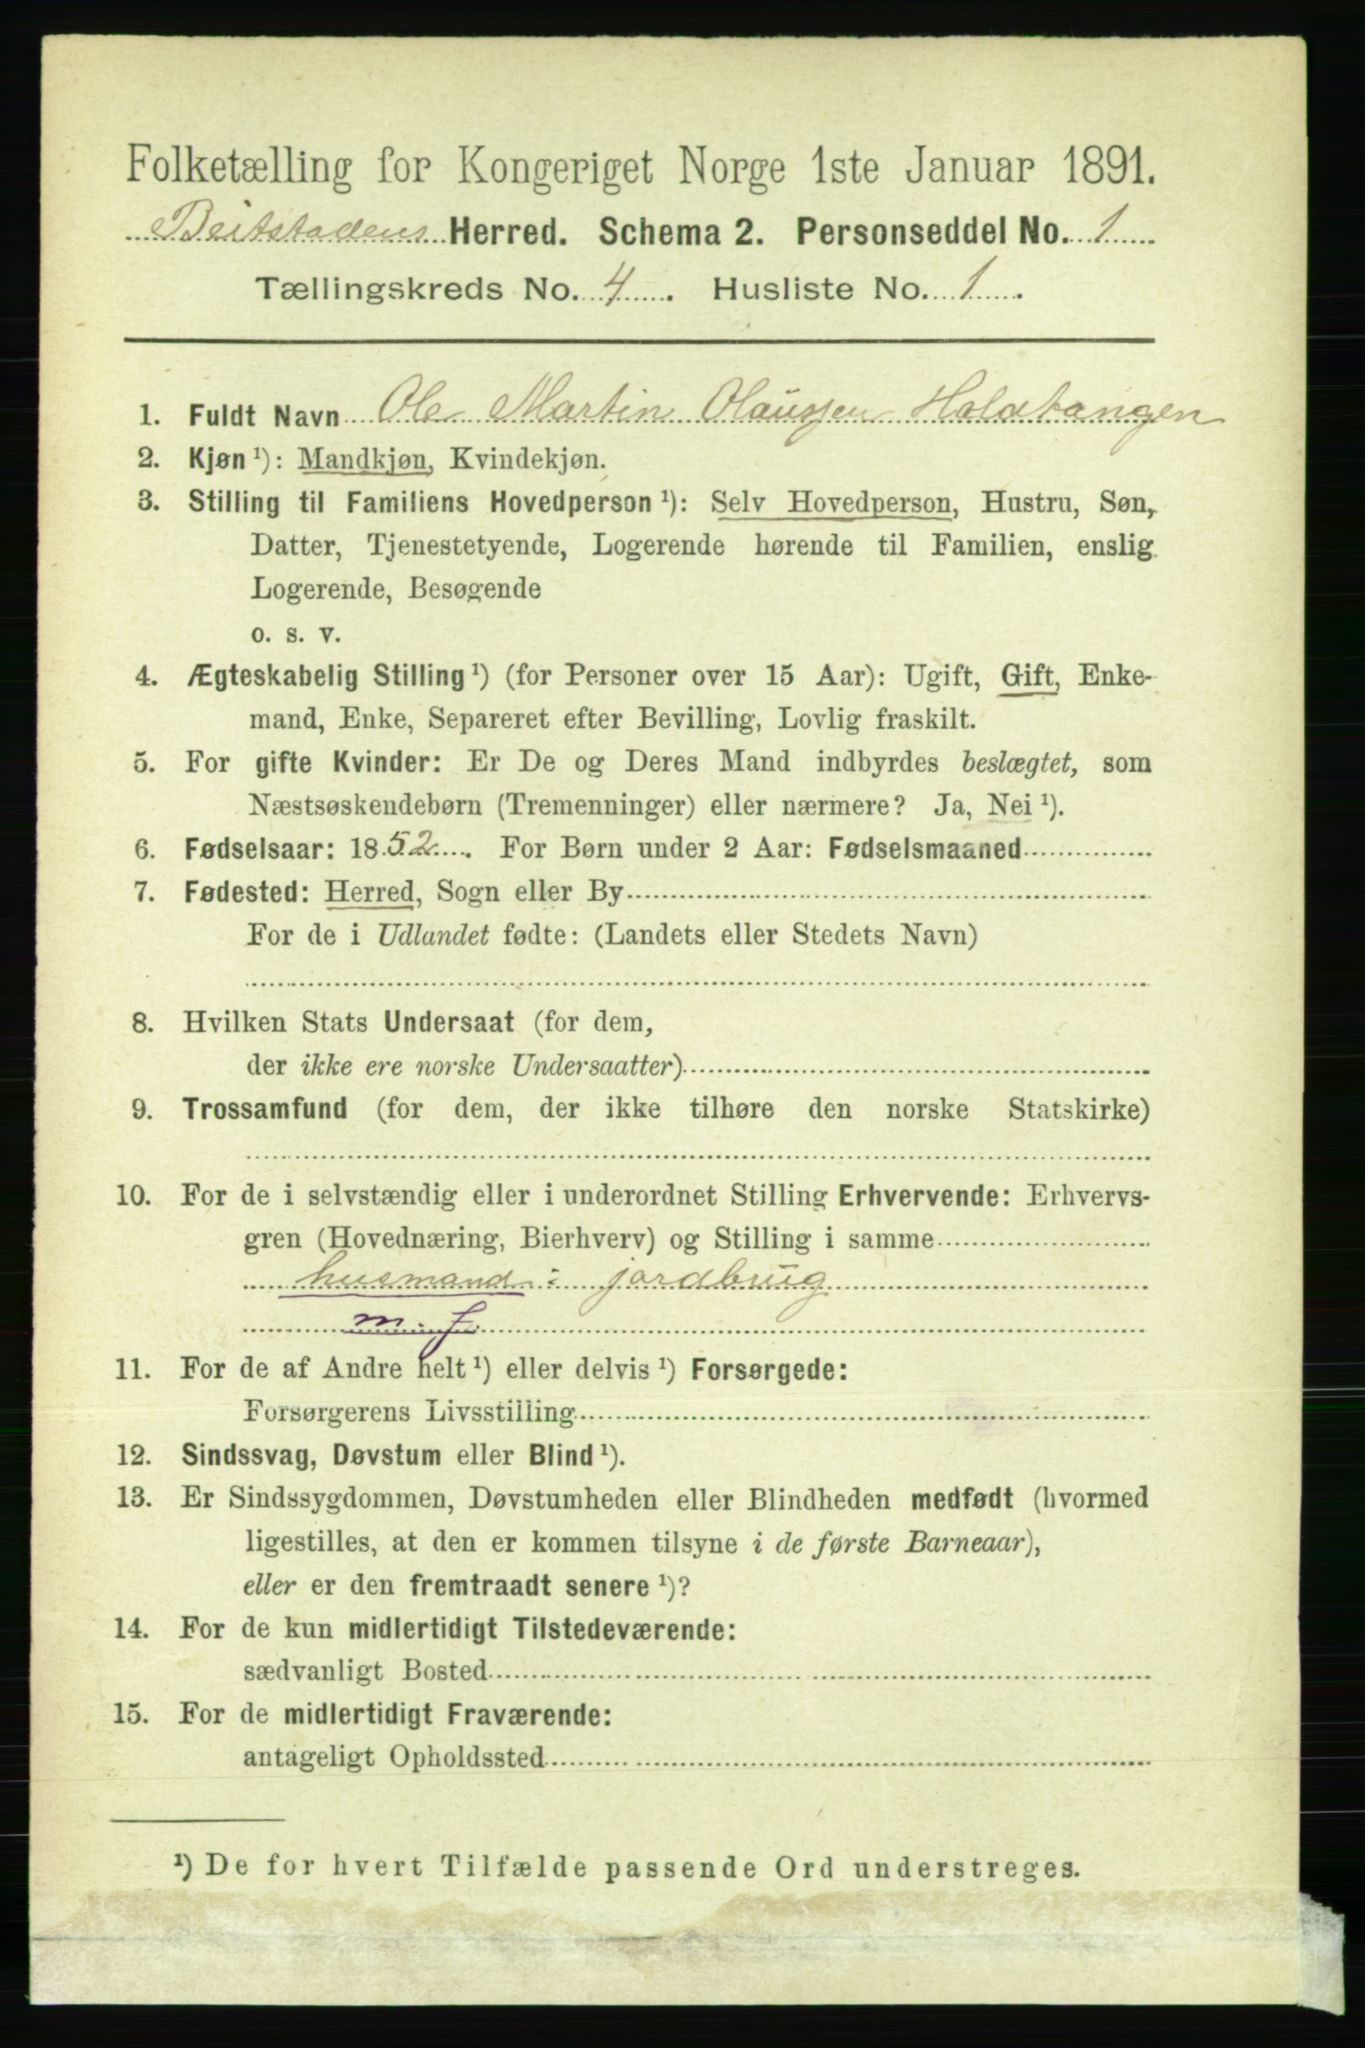 Folketælling for Kongeriget Norge 1ste Januar 1891.
Beitstadens Herred. Schema 2. Personseddel No. 1
Tællingskreds No. 4. Husliste No. 1.
1. Fuldt Navn Ole Martin Olaussen Holdtangen
2. Kjøn ¹): Mandkjøn, Kvindekjøn.
3. Stilling til Familiens Hovedperson ¹): Selv Hovedperson, Hustru, Søn,
Datter, Tjenestetyende, Logerende hørende til Familien, enslig
Logerende, Besøgende
o. s. v.
4. Ægteskabelig Stilling ¹) (for Personer over 15 Aar): Ugift, Gift, Enke-
mand, Enke, Separeret efter Bevilling, Lovlig fraskilt.
5. For gifte Kvinder: Er De og Deres Mand indbyrdes beslægtet, som
Næstsøskendebørn (Tremenninger) eller nærmere? Ja, Nei ¹).
6. Fødselsaar: 1852. For Børn under 2 Aar: Fødselsmaaned
7. Fødested: Herred, Sogn eller By
For de i Udlandet fødte: (Landets eller Stedets Navn)
8. Hvilken Stats Undersaat (for dem,
der ikke ere norske Undersaatter)
9. Trossamfund (for dem, der ikke tilhøre den norske Statskirke)
10. For de i selvstændig eller i underordnet Stilling Erhvervende: Erhvervs-
gren (Hovednæring, Bierhverv) og Stilling i samme
husmand i jordbrug
m. f.
11. For de af Andre helt ¹) eller delvis ¹) Forsørgede:
Forsørgerens Livsstilling
12. Sindssvag, Døvstum eller Blind ¹).
13. Er Sindssygdommen, Døvstumheden eller Blindheden medfødt (hvormed
ligestilles, at den er kommen tilsyne i de første Barneaar),
eller er den fremtraadt senere ¹)?
14. For de kun midlertidigt Tilstedeværende:
sædvanligt Bosted
15. For de midlertidigt Fraværende:
antageligt Opholdssted
¹) De for hvert Tilfælde passende Ord understreges.